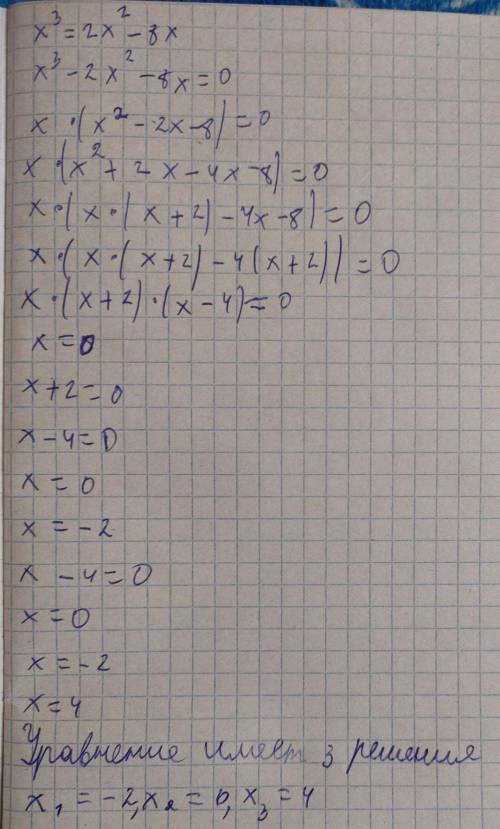 x³ = 2x² - 8x
x³ - 2x² - 8x = 0
x · (x² - 2x - 8) = 0
x · (x² + 2x - 4x - 8) = 0
x · (x · (x + 2) - 4x - 8) = 0
x · (x · (x + 2) - 4(x + 2)) = 0
x · (x + 2) · (x - 4) = 0
x = 0
x + 2 = 0
x - 4 = 0
x = 0
x = -2
x - 4 = 0
x = 0
x = -2
x = 4
Уравнение имеет 3 решения
x₁ = -2, x₂ = 0, x₃ = 4